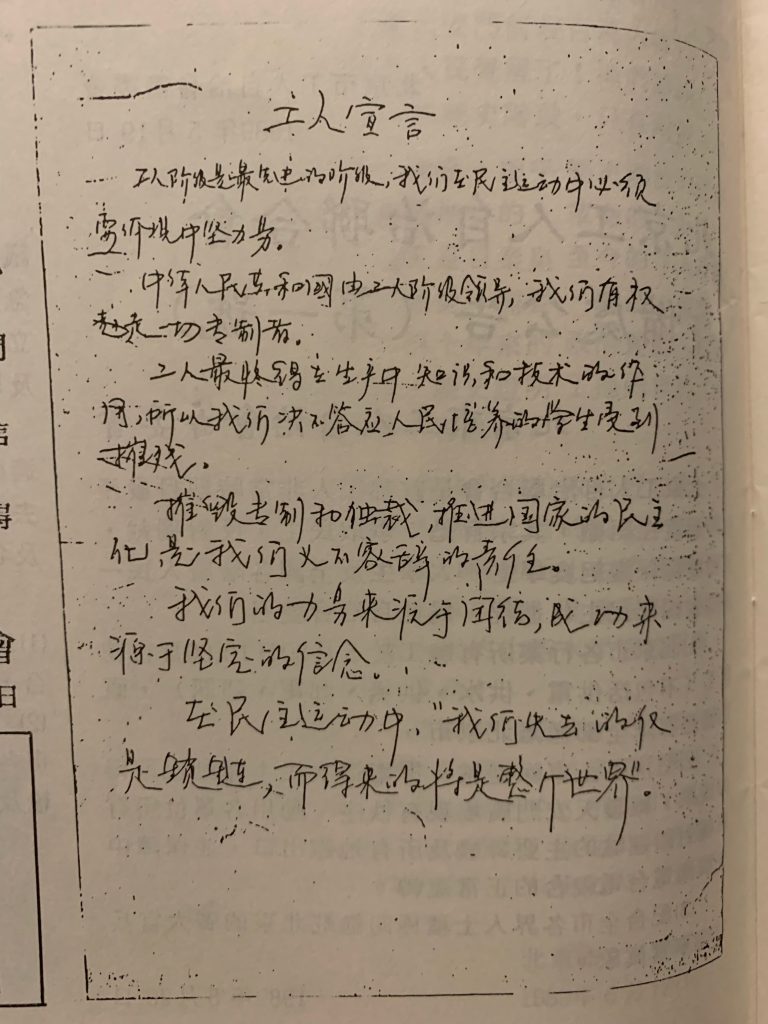 工人宣言
工人阶级是最先进的阶级,我们在民主运动中必须
要体现中坚力量。
中华人民共和國由工人阶级领导,我们有权
赶走一切专制者。
工人最懂得在生产中知识和技术的作
用,所以我们决不答应人民培养的学生受到
摧残。
摧毁专制和独裁,推进国家的民主
化,是我们义不容辞的责任。
我们的力量来源于团结,成功来
源于坚定的信念。
在民主运动中,"我们失去的仅
是锁链,而得来的将是整个世界"。
會
日